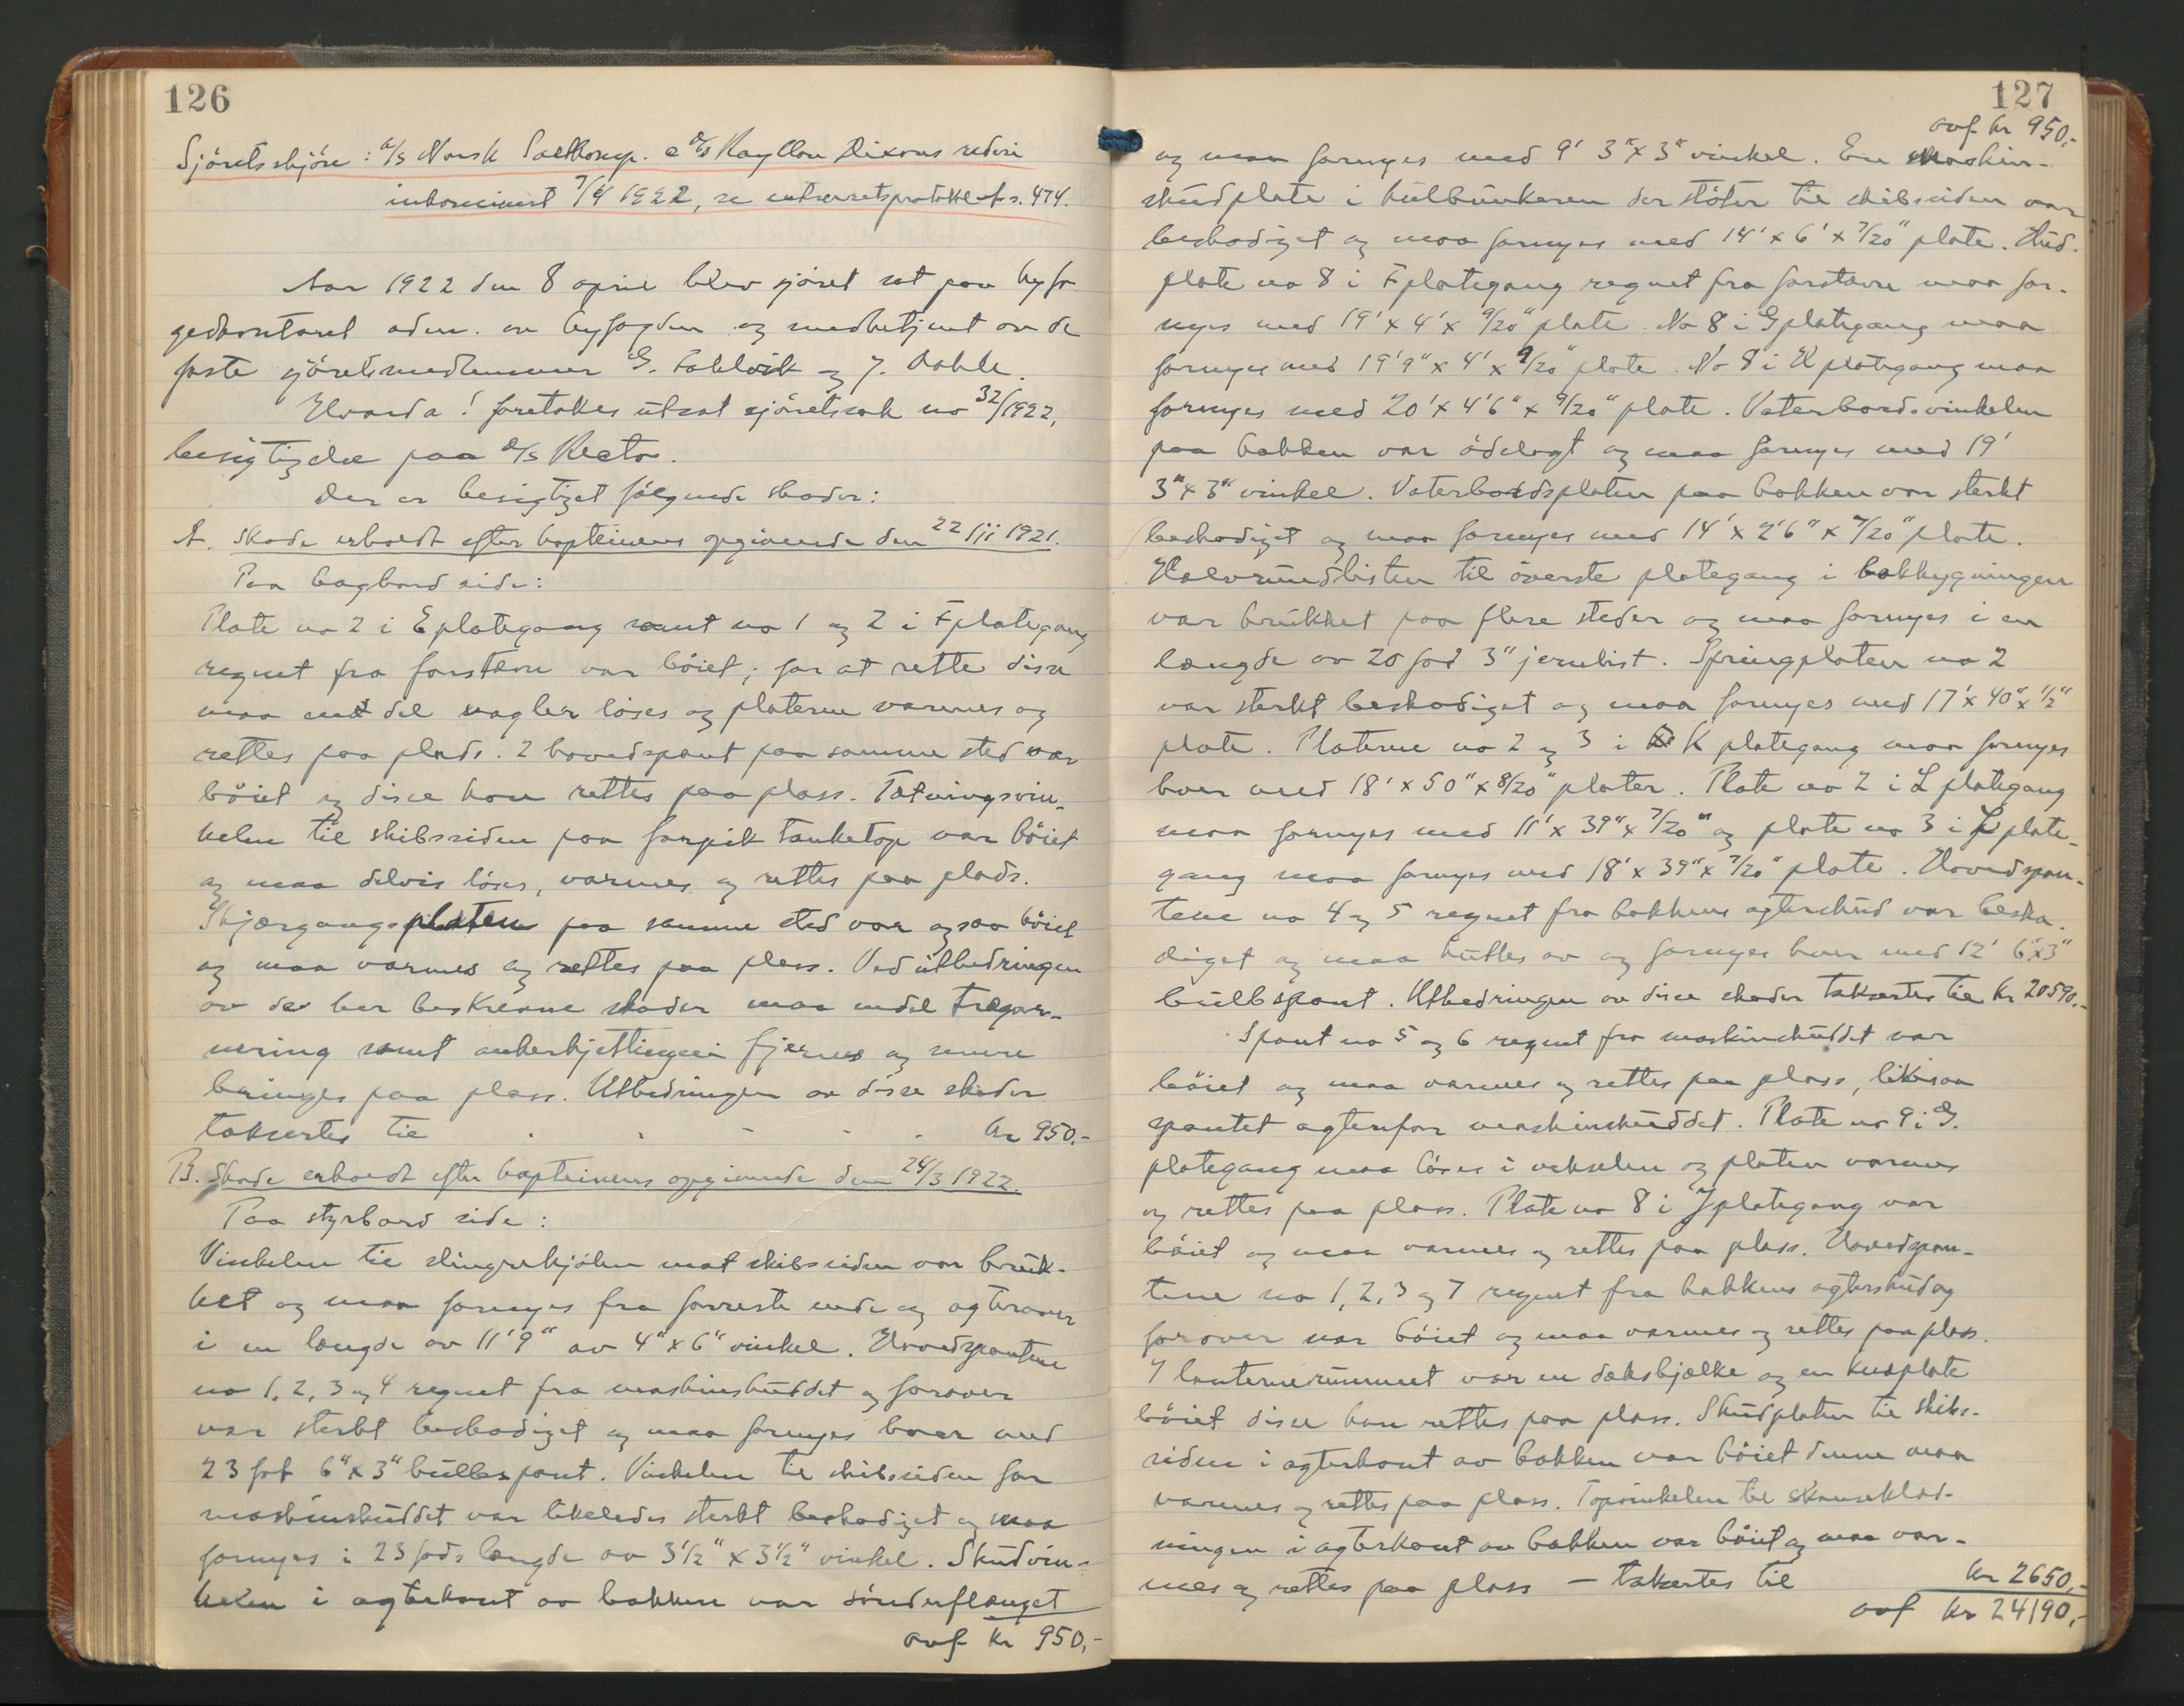 126
Sjöretsskjön: a/s Norsk Saltkomp. c d/s Rayllon Dixons rederi
inkaminert 7/4 1922, se extraretsprotokol s. 474.
Aar 1922 den 8 april blev sjöret sat paa byfo-
gedkontoret adm. av byfogden og medbetjent av de
faste sjöretsmedlemmer G. og J. Dahle.
Hvorda! foretokes utsat sjöretssak no 32/1922,
besigtigelse paa d/s Recto.
Der er besigtiget fölgende skader:
A. Skade erholdt efter kapteinens opgivende den 22/11 1921.
Paa bagbord side:
Plate no 2 i E plategang samt no 1 og 2 i F plategang
regnet fra forstevn var böiet; for at rette disse
maa endel nagler löses og platerne varmes og
rettes paa plads. 2 hovedspant paa samme sted var
böiet og disse kan rettes paa plass. Tætningsvin-
kelen til skibssiden paa forpik tanketop var böiet
og maa delvis löses, varmes og rettes paa plads.
Skjærgangsplaten paa samme sted var ogsaa böiet
og maa varmes og rettes paa plass. Ved utbedringen
av de her beskrevne skader maa endel tregar-
nering samt ankerkjettingen fjernes og senere
bringes paa plass. Utbedringen av disse skader
taksertes til . . - - . kr 950.-
B. Skade erholdt efter kapteinens opgivende den 24/3 1922.
Paa styrbord side:
Vinkelen til slingrekjölen mot skibssiden var bruk-
ket og maa fornyes fra forreste ende og agterover
i en længde av 11' 9" av 4" x 6" vinkel. Hovedspantene
no 1, 2, 3 og 4 regnet fra maskinskuddet og forover
var sterkt beskadiget og maa fornyes hver med
23 fot 6" x 3" bullbspant. Vinkelen til skibssiden for
maskinskuddet var likeledes sterkt beskadiget og maa
fornyes i 23 fods længde av 3½" x 3½" vinkel. Skudvin-
kelen i agterkant av bakken var sönderflænget
ovf kr 950,-
127
ovf kr 950,-
og maa fornyes med 9' 3" x 3" vinkel. En maskin-
skudplate i kulbunkeren der stöter til skibssiden var
beskadiget og maa fornyes med 14' x 6' x 7/20" plate. Hud-
plate no 8 i F plategang regnet fra forstevn maa for-
nyes med 19' x 4' x 9/20" plate. No 8 i G plategang maa
fornyes med 19' 9" x 4' x 9/20" plate. No 8 i H plategang maa
fornyes med 20' x 4' 6" x 9/20" plate. Vaterbordsvinkelen
paa bakken var ödelagt og maa fornyes med 19'
3" x 3" vinkel. Vaterbordsplaten paa bakken var sterkt
beskadiget og maa fornyes med 14' x 2' 6" x 7/20" plate.
Halvrundlisten til överste plategang i bakbygningen
var brukket paa flere steder og maa fornyes i en
længde av 20 fod 3" jernlist. Springplaten no 2
var sterkt beskadiget og maa fornyes med 17' x 40" x ½"
plate. Platerne no 2 og 3 i K plategang maa fornyes
hver med 18' x 50" x 8/20" plater. Plate no 2 i L plategang
maa fornyes med 11' x 39" x 7/20" og plate no 3 i L plate-
gang maa fornyes med 18' x 39" x 7/20" plate. Hovedspan-
tene no 4 og 5 regnet fra bakkens agterskud var beska-
diget og maa kuttes av og fornyes hver med 12' 6" x 3"
bullbspant. Utbedringen av disse skader taksertes til kr 20590.-
Spant no 5 og 6 regnet fra maskinskuddet var
böiet og maa varmes og rettes paa plass, likesaa
spantet agtenfor maskinskuddet. Plate no 9 i G.
plategang maa löses i vekselen og platen varmes
og rettes paa plass. Plate no 8 i J plategang var
böiet og maa varmes og rettes paa plass. Hovedspan-
tene no 1, 2, 3 og 7 regnet fra bakkens agterskud og
forover var böiet og maa varmes og rettes paa plass.
I lanternerummet var en dæksbjælke og en knæplate
böiet disse kan rettes paa plass. Skudplaten til skibs-
siden i agterkant av bakken var böiet denne maa
varmes og rettes paa plass. Topvinkelen til skanseklæd-
ningen i agterkant av bakken var böiet og maa var-
mes og rettes paa plass — taksertes til kr 2650,-
ovf kr 24190,-